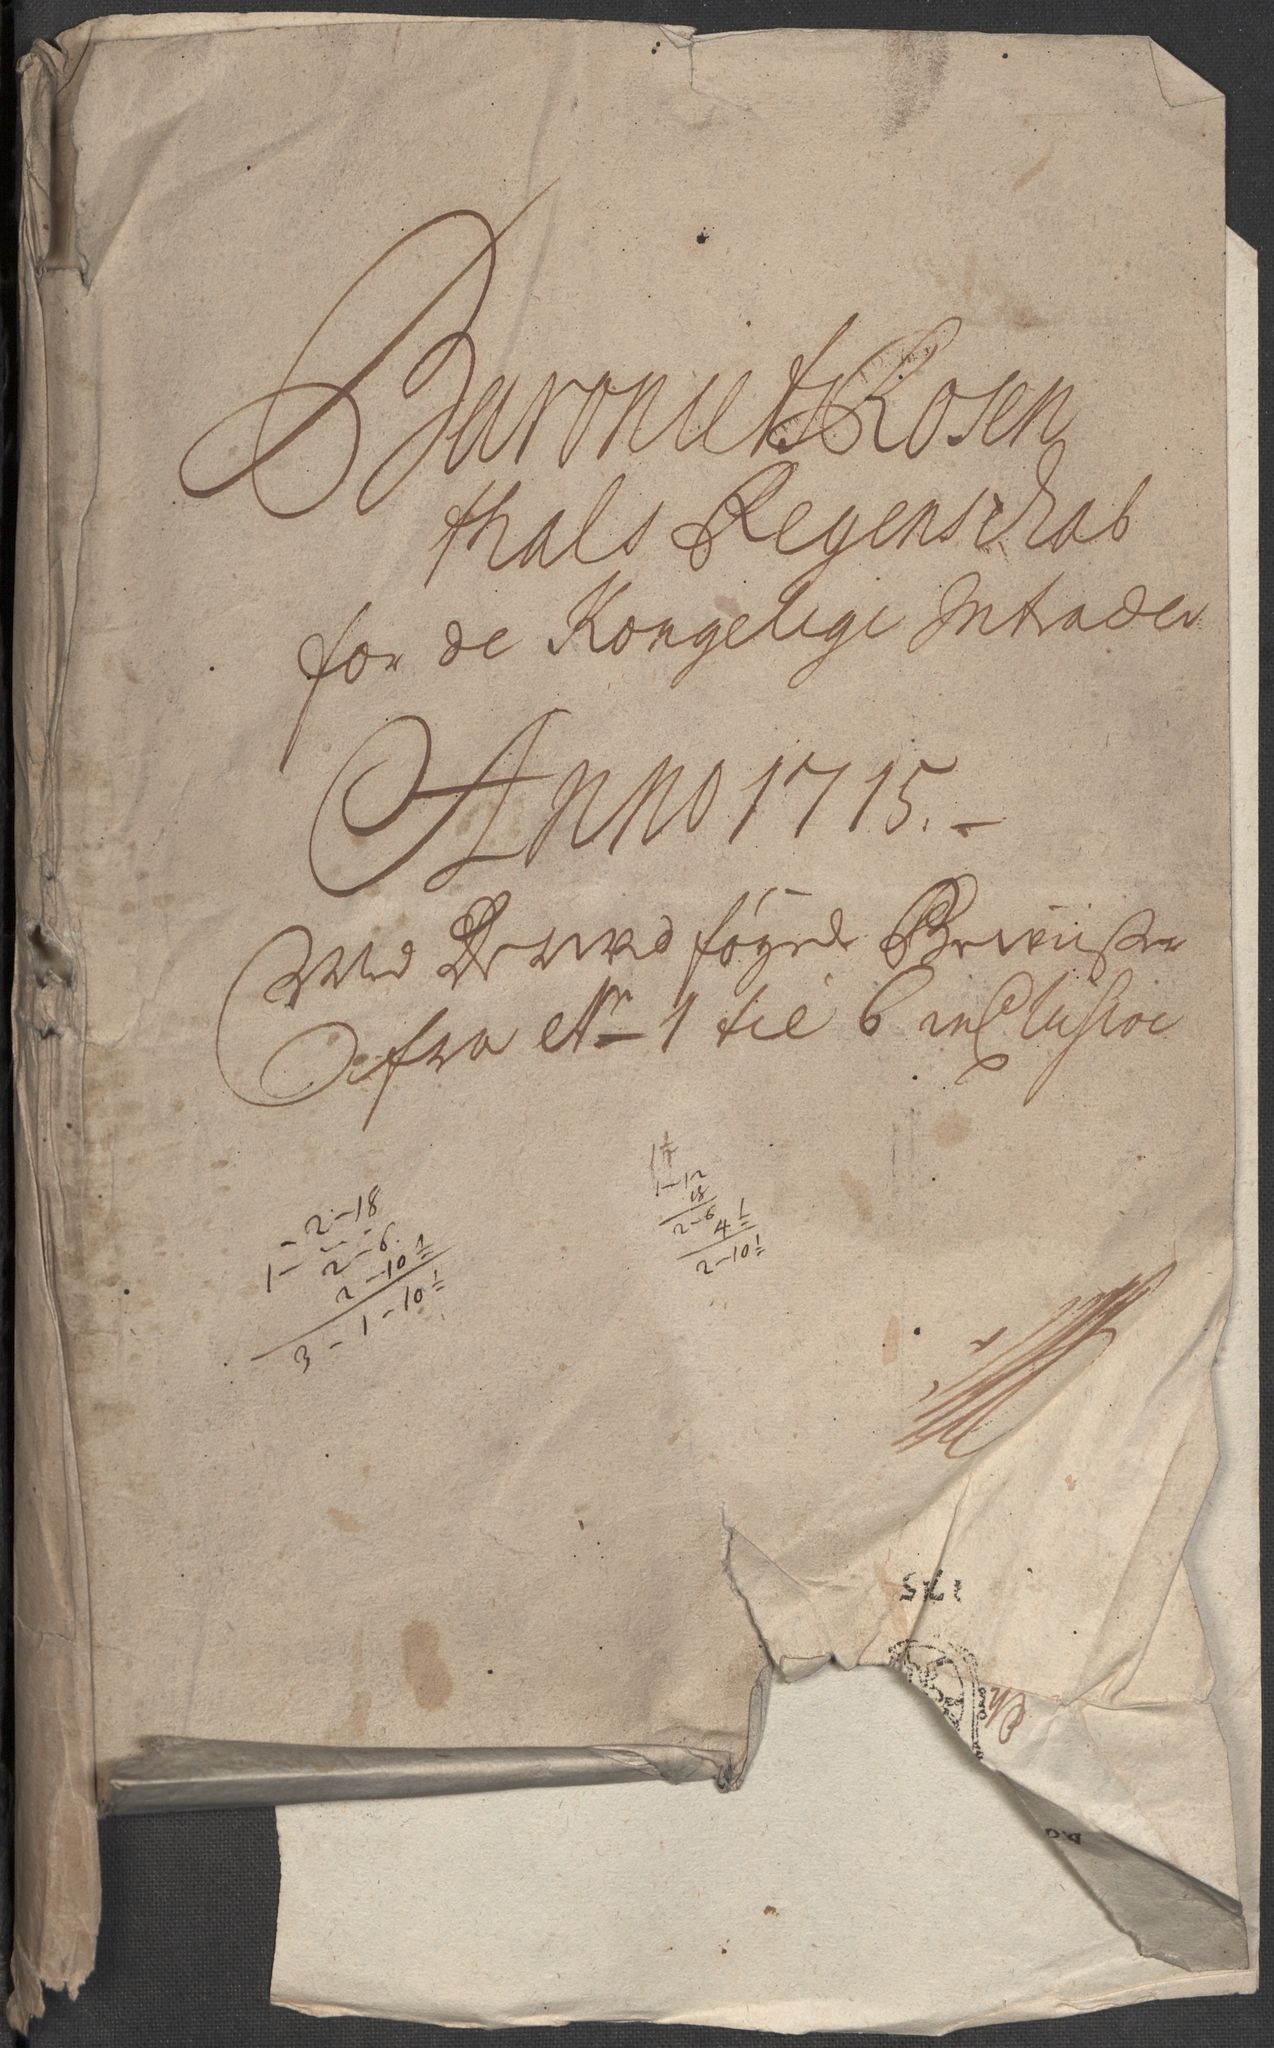 Baroniets Rosen
thals Regenskab
for de Kongelige Intrader
Anno 1715.
Med Derved føyede Beviiser
fra No 1 til 6 inclusive
1 - 2 - 18
2 - 6
2 - 10 1/2
3 - 1 - 10 1/2
1 - 12
18
2 - 6
4 1/2
2 - 10 1/2
1715